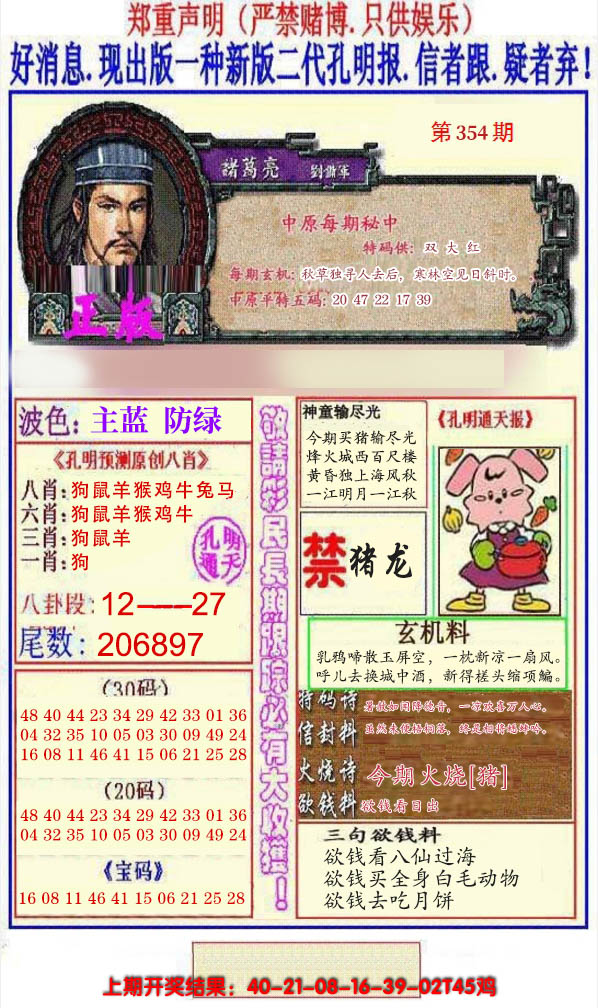 郑重声明（严禁赌博.只供娱乐）
好消息.现出版一种新版二代孔明报.信者跟.疑者弃！
第354期
諸葛亮 劉備軍
中原每期秘中
特码供：双 大 红
每期玄机：秋草独寻人去后，寒林空见日斜时。
中原平特五码：20 47 22 17 39
正版
波色：主蓝 防绿
《孔明预测原创八肖》
八肖：狗鼠羊猴鸡牛兔马
六肖：狗鼠羊猴鸡牛
三肖：狗鼠羊
一肖：狗
孔明
通天
八卦段：12——27
尾数：206897
（30码）
48 40 44 23 34 29 42 33 01 36
04 32 35 10 05 03 30 09 49 24
16 08 11 46 41 15 06 21 25 28
（20码）
48 40 44 23 34 29 42 33 01 36
04 32 35 10 05 03 30 09 49 24
《宝码》
16 08 11 46 41 15 06 21 25 28
敬請彩民長期跟踪必有大收獲！
神童输尽光
今期买猪输尽光
烽火城西百尺楼
黄昏独上海风秋
一江明月一江秋
《孔明通天报》
禁 猪龙
玄机料
乳鸦啼散玉屏空，一枕新凉一扇风。
呼儿去换城中酒，新得槎头缩项鳊。
特码诗 暑教如闻降德音，一凉欢喜万人心。
信封料 虽然未便梧桐落，终是相将蟋蟀吟。
火烧诗 今期火烧[猪]
欲钱料 欲钱看日出
三句欲钱料
欲钱看八仙过海
欲钱买全身白毛动物
欲钱去吃月饼
上期开奖结果：40-21-08-16-39-02T45鸡